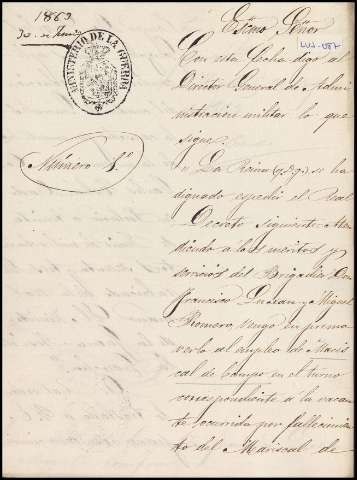 1863
30. de Enero
MINISTERIO DE LA GUERRA
Número 1º
Exsmo Señor
LUJ-087
Con esta fecha digo al
Director General de Admi-
nistracion militar lo que
sigue.
"La Reina (q.D.g.) se ha
dignado espedir el Real
Decreto siguiente= Aten
diendo a los meritos y
servicios del Brigadier Don
Francisco Luxan y Miguel
Romero, vengo en promo-
verlo al empleo de Maris
cal de Campo en el turno
correspondiente a la vacan
te ocurrida por fallecimien
to del Mariscal de